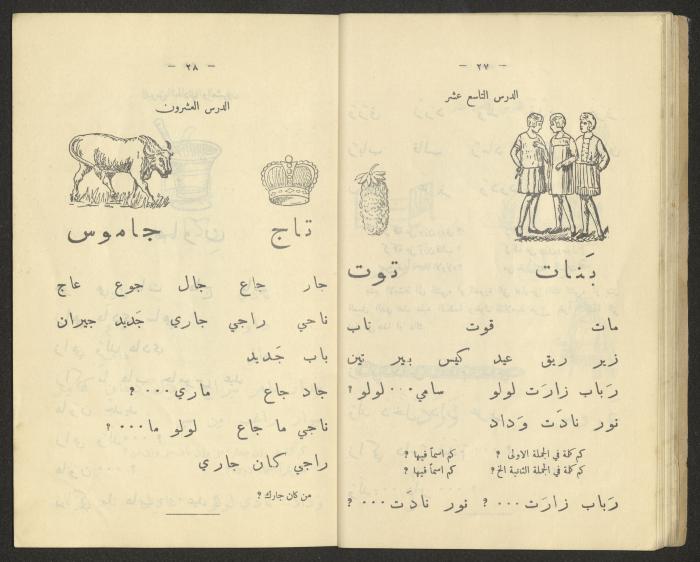 - ٢٧ -
الدرس التاسع عشر
بَنات توت
مات قوت ناب
زير ريق عيد كيس بير تين
رَباب زارَت لولو سامي ٠٠٠ لولو ؟
نور نادَت وَداد
كم كلمة في الجملة الاولى ؟ كم اسماً فيها ؟
كم كلمة في الجملة الثانية الخ ؟ كم اسماً فيها ؟
رَباب زارَت ٠٠٠ ؟ نور نادَت ٠٠٠ ؟
- ٢٨ -
الدرس العشرون
تاج جاموس
جار جاع جال جوع عاج
ناجي راجي جاري جَديد جيران
باب جَديد
جاد جاع ماري ٠٠٠ ؟
ناجي ما جاع لولو ما ٠٠٠ ؟
راجي كان جاري
من كان جارك ؟